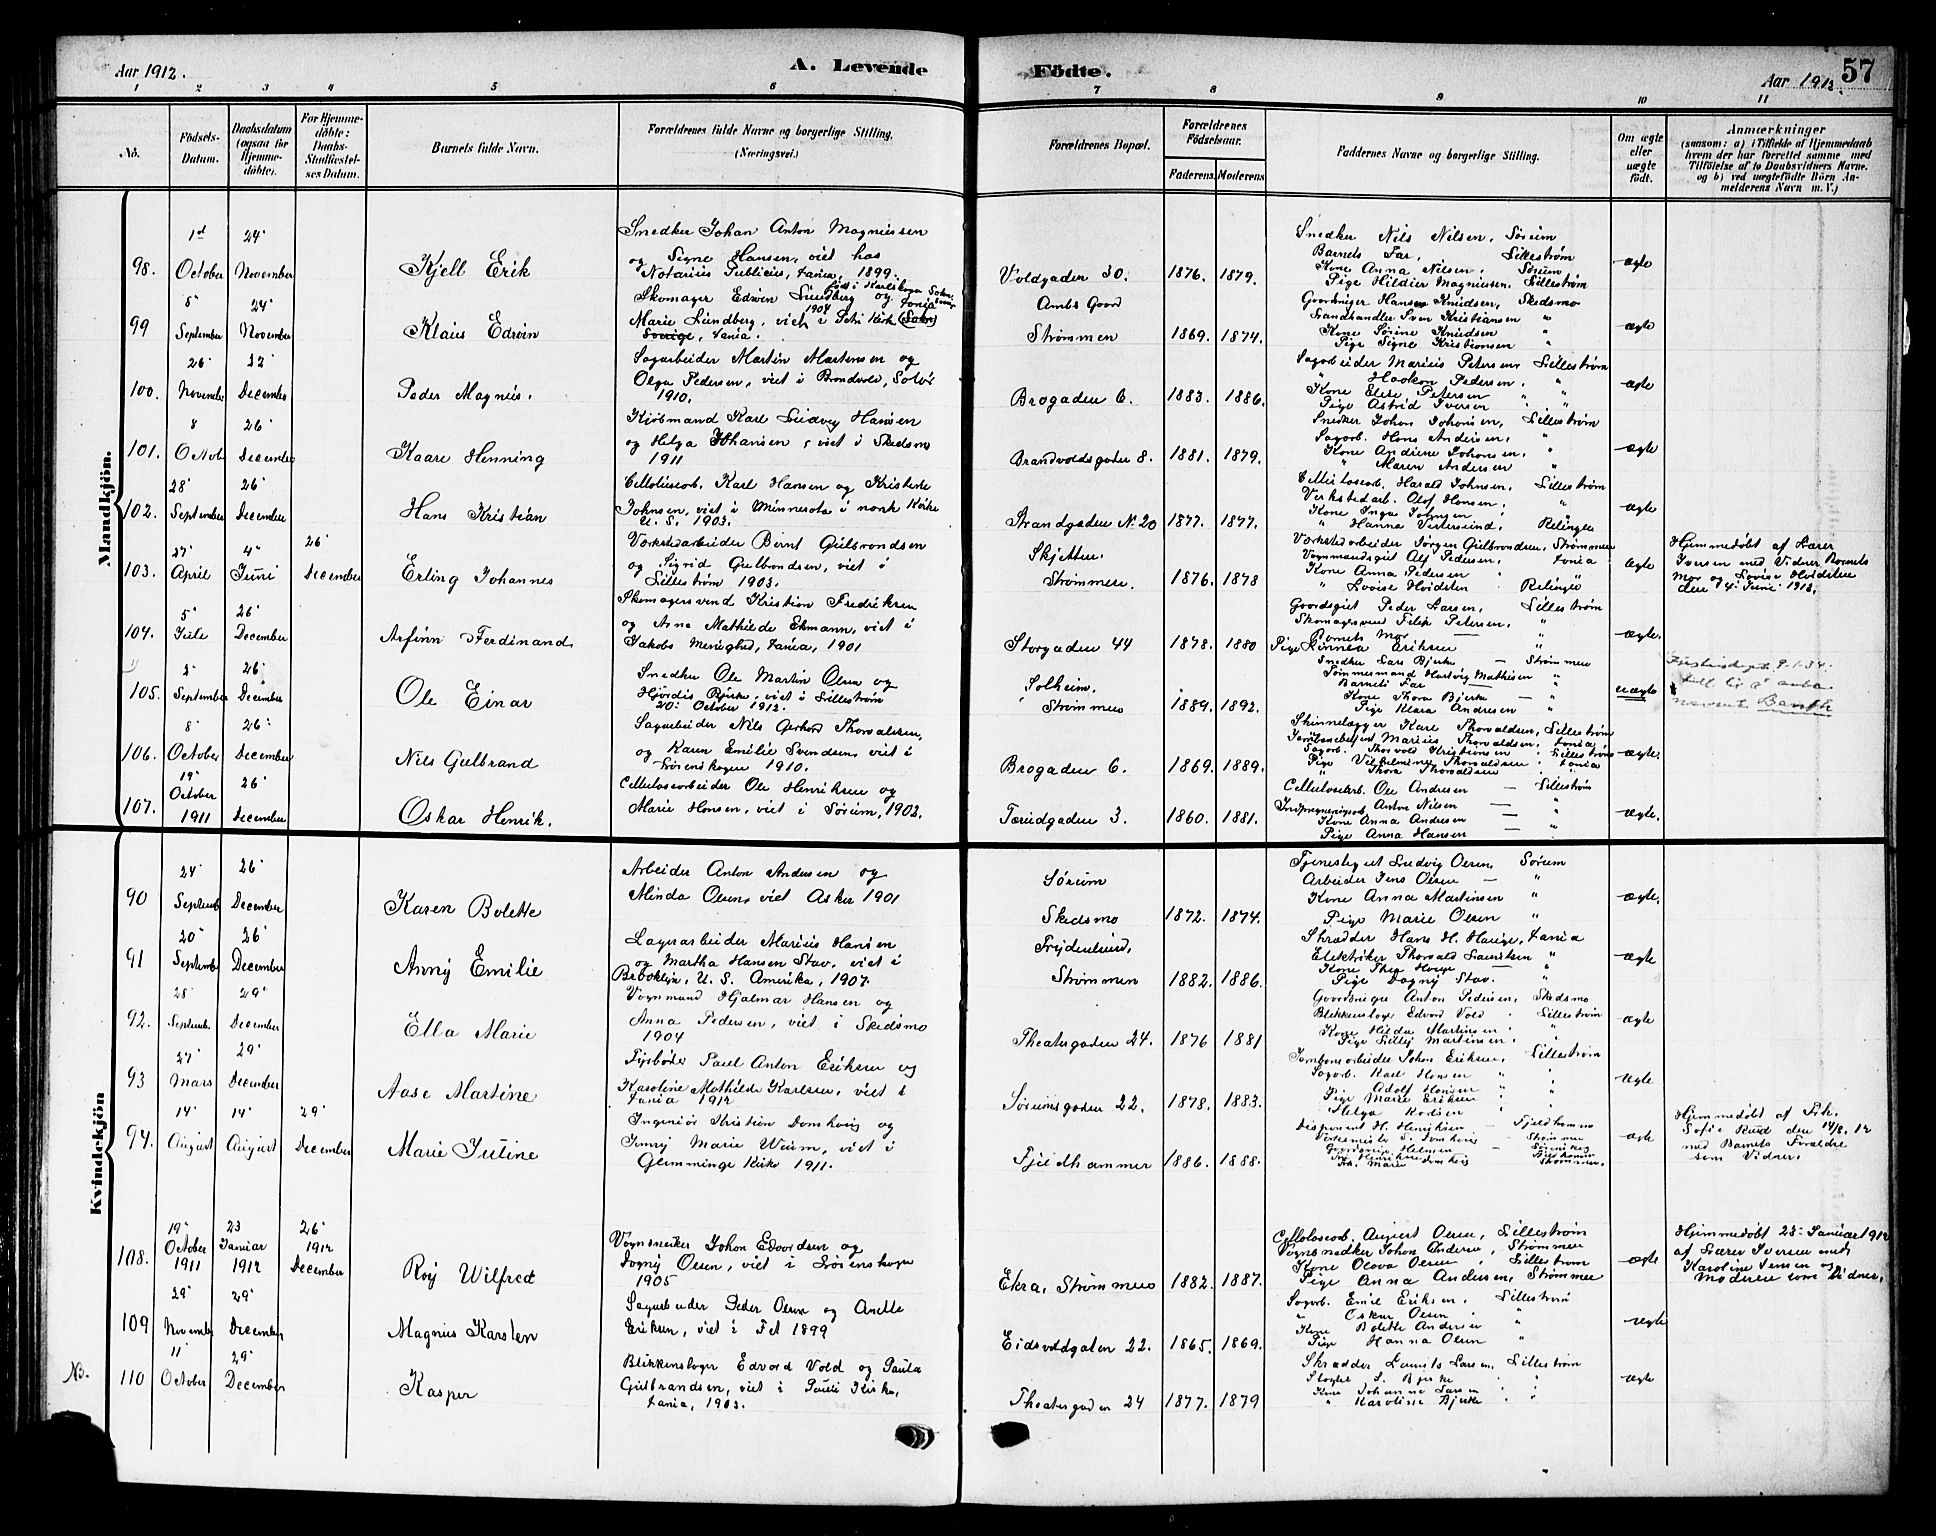 Aar 1912.
A. Levende
Födte.
Aar 1912.
57
1 2 3 4 5 6 7 8 9 10 11
No.
Födsels-Datum.
Daabsdatum (ogsaa for Hjemmedöbte).
For Hjemmedöbte: Daabs-Stadfæstelses Datum.
Barnets fulde Navn.
Forældrenes fulde Navne og borgerlige Stilling. (Næringsvei.)
Forældrenes Bopæl.
Forældrenes Födselsaar.
Faderens. Moderens
Faddernes Navne og borgerlige Stilling.
Om ægte eller uægte födt.
Anmærkninger
(saasom: a) i Tilfælde af Hjemmedaab
hvem der har forrettet samme med
Tilföielse af to Daabsvidners Navne.
og b) ved uægtefödte Börn An-
melderens Navn m. V.)
Mandkjön.
98.
1st October
24 November
Kjell Erik
Snedker Johan Anton Magnussen
og Signe Hansen, viet hos
Notarius Publicus, Xania, 1899.
Voldgaden 30.
1876. 1879.
Snedker Nils Nilsen, Sørum
Barnets Far, Lillestrøm
Kone Anna Nilsen, Sørum
Pige Hildur Magnussen, Lillestrøm
ægte
99
5 September
24 November
Klaus Edvin
Skomager Edvin Lundberg og
Marie Lundberg, viet i
Sverige, Xania.
Strømmen
1869. 1874.
Gaardbruger Hansen Knudsen, Skedsmo
Landhandler Sven Kristiansen "
Kone Sørine Knudsen "
Pige Signe Kristiansen "
ægte
100.
26 November
December
Peder Magnus.
Sagarbeider Martin Martinsen og
Olga Pedersen, viet i Brandvold, Solør
1910.
Brogaden 6.
1883. 1886.
Sagarbeider Marius Petersen, Lillestrøm
" Haakon Pedersen, "
Kone Elise Petersen "
Pige Astrid Iversen "
ægte
101.
8 Octob
26 December
Kaare Henning
Kjöbmand Karl Ludvig Hansen
og Helga Johansen, viet i Skedsmo
1911
Brandvoldsgaden 8.
1881. 1879.
Snedker Johan Johansen, Lillestrøm
Sagarb. Hans Andersen, "
Kone Andrine Johansen, "
" Maren Andersen "
ægte
102.
28 September
26 December
Hans Kristian
Cellulosearb. Karl Hansen og
Johnsen, viet i Minnesota i norsk Kirke
U. S. 1903.
Strandgaden N. 20
1877. 1877.
Cellulosearb. Harald Johnsen, Lillestrøm
Verkstedarb. Olaf Hansen, "
Kone Inga Johnsen "
" Hanna, Relingen
ægte
103.
27 April
4 Juni
26 December
Erling Johannes
Værkstedarbeider Bernt Gulbrandsen
og Sigrid Gulbrandsen, viet i
Lillestrøm 1903.
Skjetten.
Strømmen.
1876. 1878
Værkstedarbeider Jørgen Gulbrandsen, Strømmen
Vognmandsgut Alf Pedersen, Xania
Kone Anna Pedersen "
" Lovise Hvidsten Relingen
ægte
Hjemmedøbt af Lærer
Iversen med Vidner Barnets
Mor og Lovise Hvidsten
den 4 Juni 1912.
104.
5 Jule
26 December
Arfinn Ferdinand
Skomagersvend Kristian Fredriksen
og Anna Mathilde Ekmann, viet i
Jakobs Menighed, Xania, 1901
Storgaden 44
1878. 1880
Gaardsgut Peder Larsen, Lillestrøm
Skomagersvend Filip Petersen, "
Barnets Mor — "
Pige Linnea Eriksen "
ægte.
105.
2 September
26 December
Ole Einar
Snedker Ole Martin Olsen og
Hjördis Bjerke, viet i Lillestrøm
20 October 1912.
Solheim.
Strømmen
1889. 1892.
Snedker Lars Bjerke — Strømmen
Tømmermand Hartvig Mathisen "
Barnets Far — "
Kone Thora Bjerke — "
Pige Klara Andresen "
uægte
9-1-34.
106.
8 October
26 December
Nils Gulbrand
Sagarbeider Nils Gerhard Thorvaldsen,
og Karen Emilie Svendsen, viet i
Lørenskogen 1910.
Brogaden 6.
1869. 1889.
Skinnelægger Karl Thorvaldsen, Lillestrøm
Jernbanebetjent Marius Thorvaldsen, Xania
Sagarb. Thorvald Kristiansen Lillestrøm
Pige Vilhelmine Thorvaldsen Xania
" Thora Thorvaldsen "
ægte.
107.
19 October 1911
26 December
Oskar Henrik.
Cellulosearbeider Ole Henriksen og
Marie Hansen, viet i Sørum, 1903.
Tærudgaden 3.
1860. 1881.
Cellulosearb. Ole Andresen — Lillestrøm
Anton Nilsen — "
Kone Anna Andresen — "
Pige Anna Hansen — "
ægte.
Kvindekjön
90
24 Septemb
26 December
Karen Bolette
Arbeider Anton Andersen og
Minda Olsen, viet Asker 1901
Sørum
Skedsmo
1872. 1874.
Tjenestegut Ludvig Olsen Sørum
Arbeider Jens Olsen — "
Kone Anna Martinsen "
Pige Marie Olsen "
ægte.
91
20 Septembe
26 December
Anny Emilie
Lagerarbeider Marius Hansen
og Martha Hansen Stav, viet i
Brooklyn, U. S. Amerika, 1907.
Frydenlund,
Strømmen
1882. 1886.
Skrædder Hans H. Hauge, Xania
Elektriker Thorvald Lauritsen "
Kone Thea Hauge — "
Pige Dagny Stav. "
ægte
92.
28 Septemb.
29 December
Ella Marie
Vognmand Hjalmar Hansen og
Anna Pedersen, viet i Skedsmo
1904
Theatergaden 24.
1876 1881
Gaardbruger Anton Pedersen. Skedsmo
Blikkenslager Edvard Vold Lillestrøm
Kone Hilda Martinsen "
Pige Lilly Martinsen "
ægte
93
27 Mars
29 December
Aase Martine
Fyrbøder Paul Anton Eriksen og
Karoline Mathilde Karlsen, viet i
Xania 1912
Sørumsgaden 22.
1878. 1883.
Jernbanearbeider Johan Eriksen, Lillestrøm
Sagarb. Karl Hansen "
" Adolf Hansen "
Pige Marie Eriksen "
" Helga Karlsen "
ægte
94.
14 August
14 August
29 December
Marie Jutine
Ingeniør Kristian Domhoug og
Jenny Marie Wium, viet i
Glemminge Kirke 1911.
Fjeldhammer
1886. 1888.
Disponent H. Henriksen — Fjeldhammer
Strømmen
ægte
Hjemmedøbt af Frk.
Sofie Rud den 14/8. 12
med Barnets Forældre
som Vidner.
108.
19 October 1911
23 Januar 1912
26 1912 December
Roy Wilfred
Vognsnekker Johan Edvardsen og
Dagny Olsen, viet i Lørenskogen
1905
Ekra, Strømmen
1882. 1887.
Cellulosearb. August Olsen, Lillestrøm
Vognsnedker Johan Andersen, Strømmen
Kone Olava Olsen, Lillestrøm
Pige Anna Andersen, Strømmen
ægte
Hjemmedøbt 23 Januar 1912
af Lærer Iversen med
Karoline Jensen og
Moderen som Vidner.
109
29 November
29 December
Magnus Karsten
Sagarbeider Peder Olsen og Anette
Eriksen, viet i Fet 1899
Eidsvoldgaten 22.
1865. 1869.
Sagarb. Emil Eriksen, Lillestrøm
" Oskar Olsen "
Kone Bolette Andersen "
Pige Hanna Olsen "
ægte
NB.
110
11 October
29 December
Kasper
Blikkenslager Edvard Vold og Paula
Gulbrandsen, viet i Pauli Kirke,
Xania, 1903.
Theatergaden 24
1877. 1879
Skrædder Laurits Larsen, Lillestrøm
Slagter L. Bjerke "
Kone Johanne Larsen "
" Karoline Bjerke "
ægte